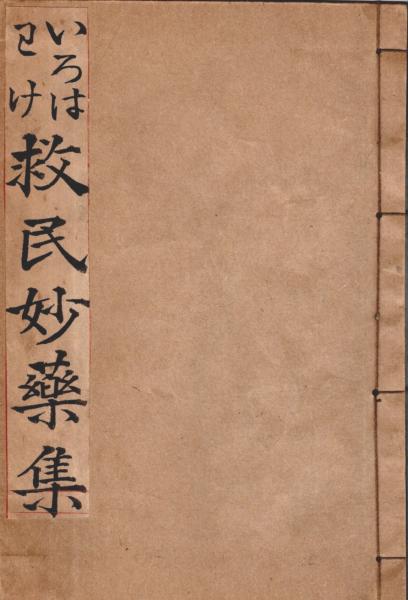 いろは
わけ
救民妙藥集